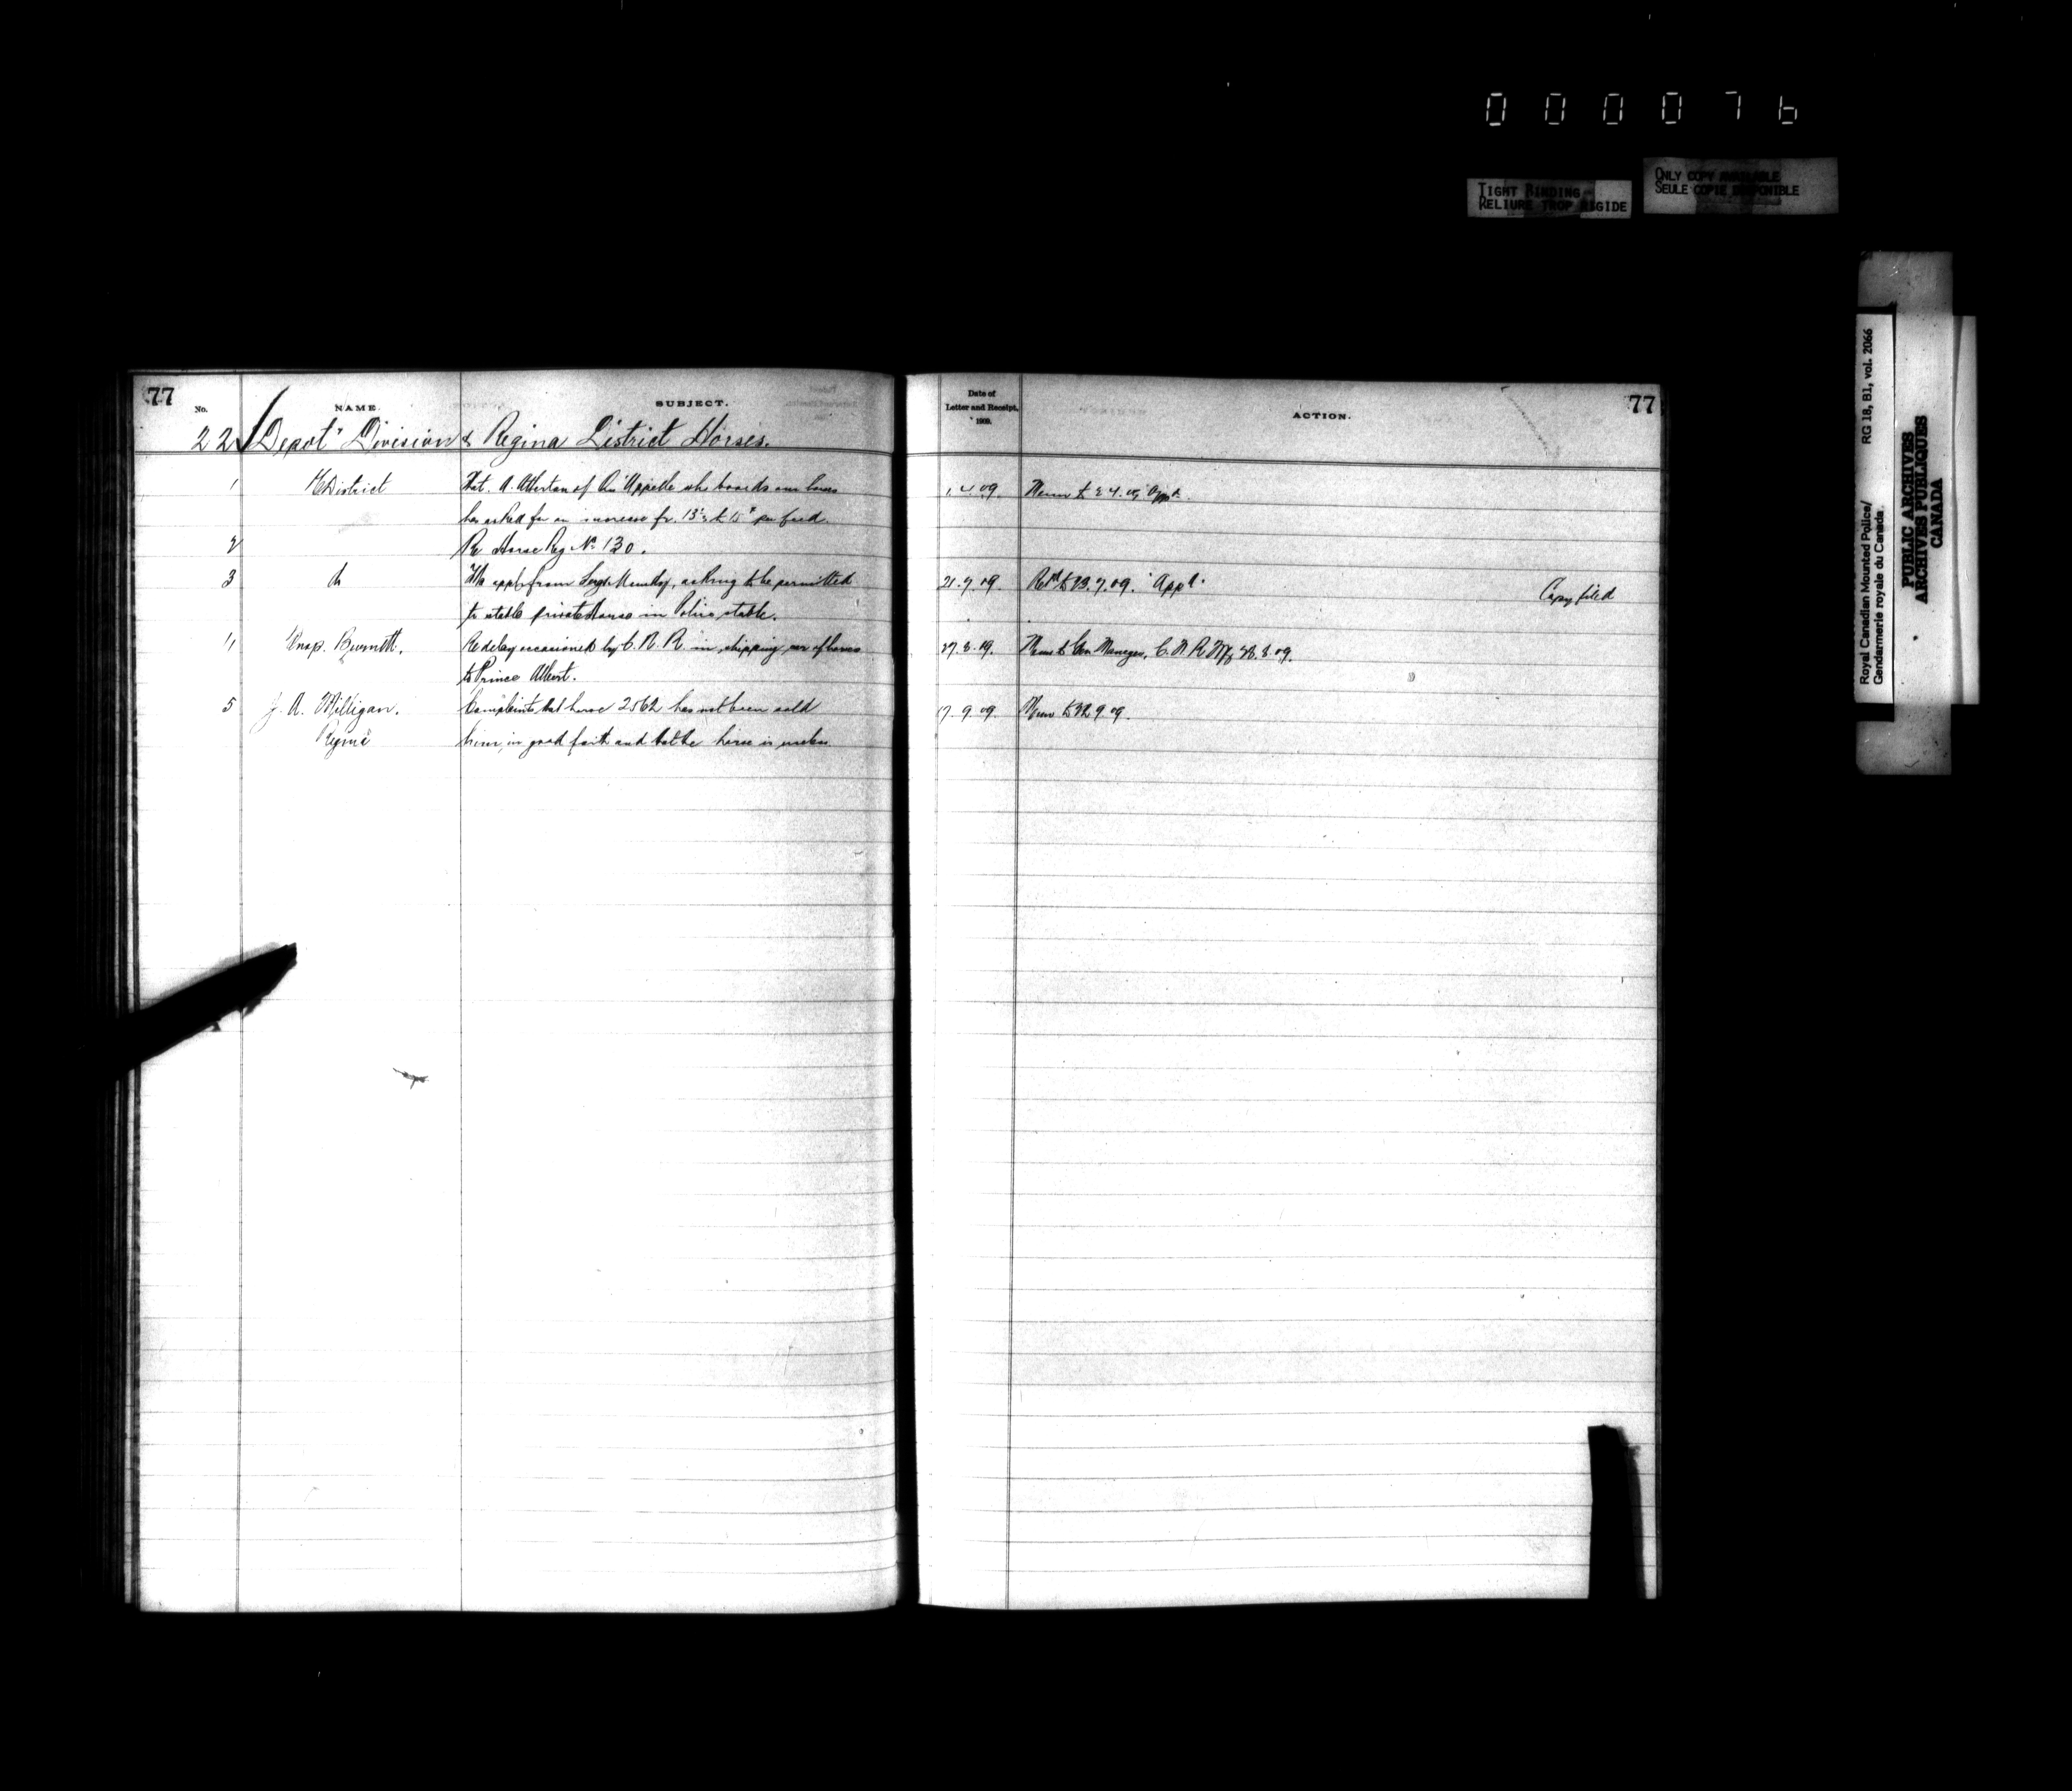 000076
TIGHT BINDING
RELIURE TROP RIGIDE
ONLY COPY AVAILABLE
SEULE COPIE DISPONIBLE
Royal Canadian Mounted Police/ RG 18, B1, vol. 2066
Gendarmerie royale du Canada
PUBLIC ARCHIVES
ARCHIVES PUBLIQUES
CANADA
77
No. NAME. SUBJECT.
22 "Depot" Division & Regina District Horses.
1 District That. A. Atherton of Qu'Appelle who boards our horses
has asked for an increase fr. 13½ to 15¢ per feed.
2 Re Horse Reg No 130.
3 appl. from Sergt. asking to be permitted
to stable private horse in Police stable.
4 Insp. Burnett. Re delay occasioned by C.N.R. in shipping car of horses
to Prince Albert.
5 J. A. Milligan. Complaints that horse 2562 has not been sold
Regina him in good faith and that the horse is
77
Date of
Letter and Receipt,
1909.
ACTION.
1.4.09. Memo to 2.4.09 App'd.
21.7.09. Ret'd to 23.7.09. App'd. Copy filed
27.8.09. Memo to Gen Manager, C.N.R. Wpg 28.8.09.
17.9.09. Memo to 22.9.09.